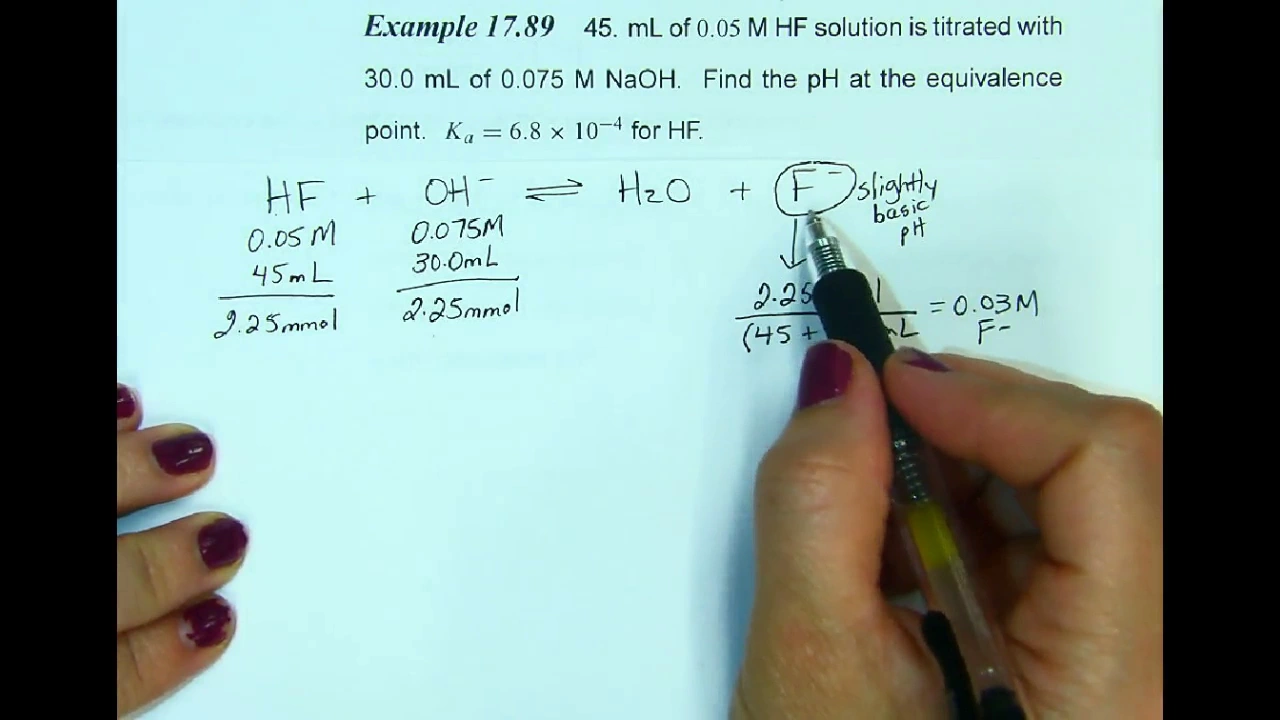 Example 17.89 45. mL of 0.05 M HF solution is titrated with
30.0 mL of 0.075 M NaOH. Find the pH at the equivalence
point. Kₐ = 6.8 × 10⁻⁴ for HF.
HF + OH⁻ ⇌ H₂O + F⁻ slightly
basic
pH
0.05 M 0.075M
45mL 30.0mL
2.25mmol 2.25mmol
2.25 = 0.03M
(45 + mL F-